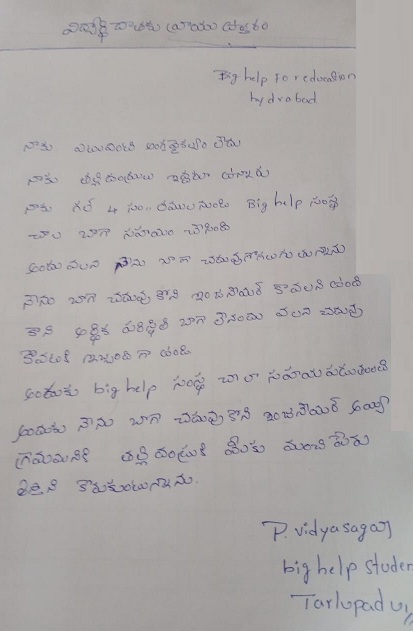 విద్యార్థి దాతకు వ్రాయు ఉత్తరం
Big help To reducation
hydrabad
నాకు ఎటువంటి అంగవైకల్యం లేదు
నాకు తల్లిదండ్రులు ఇద్దరూ ఉన్నారు
నాకు గత 4 సం.. రముల నుండి Big help సంస్థ
చాల బాగా సహాయం చేసింది
అందు వలన నేను బాగా చదువుకోగలుగుతున్నాను
నేను బాగా చదువు కొని ఇంజనీయర్ కావలని ఉంది
కాని ఆర్థిక పరిస్థితి బాగా లేనందు వలన చదువు
కోవటంకి ఇబ్బంది గా ఉంది
అందుకు big help సంస్థ చాలా సహాయ పడుతుంది
అందుకు నేను బాగా చదువు కొని ఇంజనీయర్ అయ్యి
గ్రామమనికి తల్లి దండ్రుకి మీకు మంచి పేరు
తేవలని కోరుకుంటున్నాను.
P. vidyasagar
big help studen
Tarlupadu